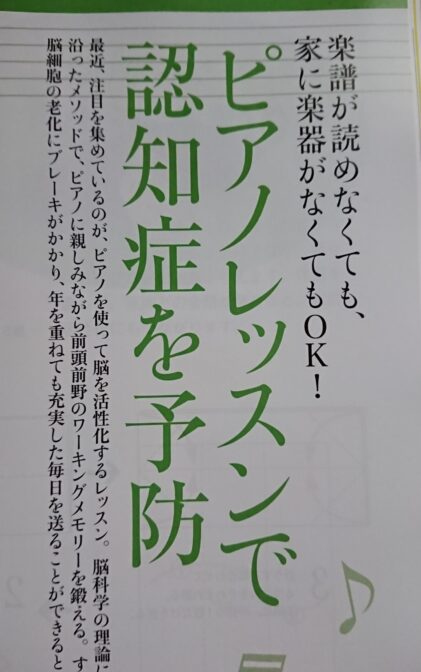 楽譜が読めなくても、
家に楽器がなくてもOK！
ピアノレッスンで
認知症を予防
最近、注目を集めているのが、ピアノを使って脳を活性化するレッスン。脳科学の理論に
沿ったメソッドで、ピアノに親しみながら前頭前野のワーキングメモリーを鍛える。す
脳細胞の老化にブレーキがかかり、年を重ねても充実した毎日を送ることができると